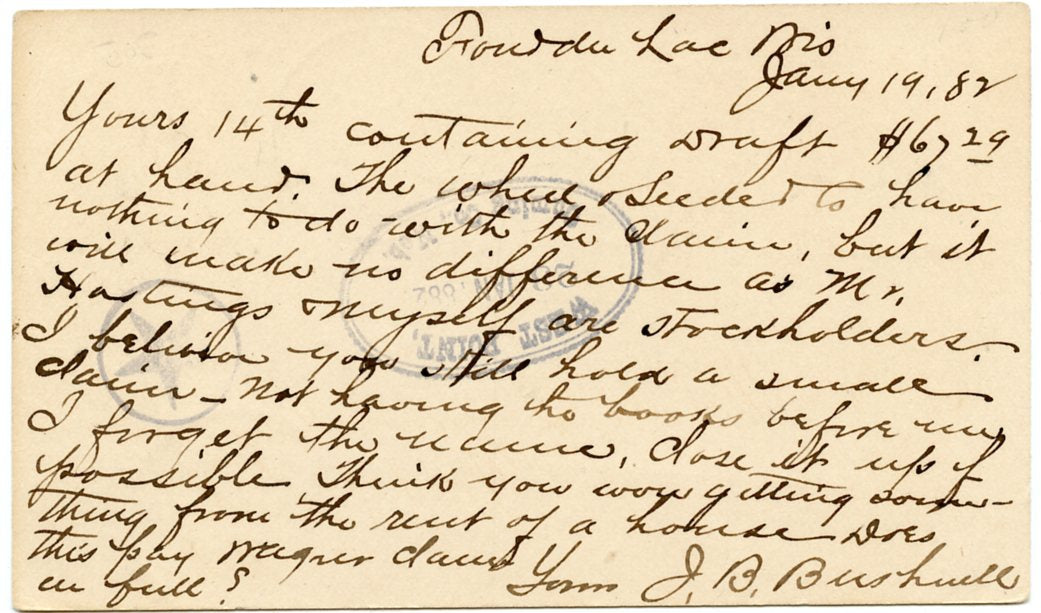 Fond du Lac Wis
Jany 19, 82
Yours 14th containing Draft $67 29
at hand. The wheel & Seeder Co have
nothing to do with the claim, but it
will make no difference as Mr.
Hastings & myself are stockholders.
I believe you still hold a small
claim - Not having the books before me
I forget the name. Close it up if
possible Think you were getting some-
thing from the rent of a house Does
this pay Wagner claim
in full?
Yours J. B. Bushnell
WEST POINT,
JAN 1882